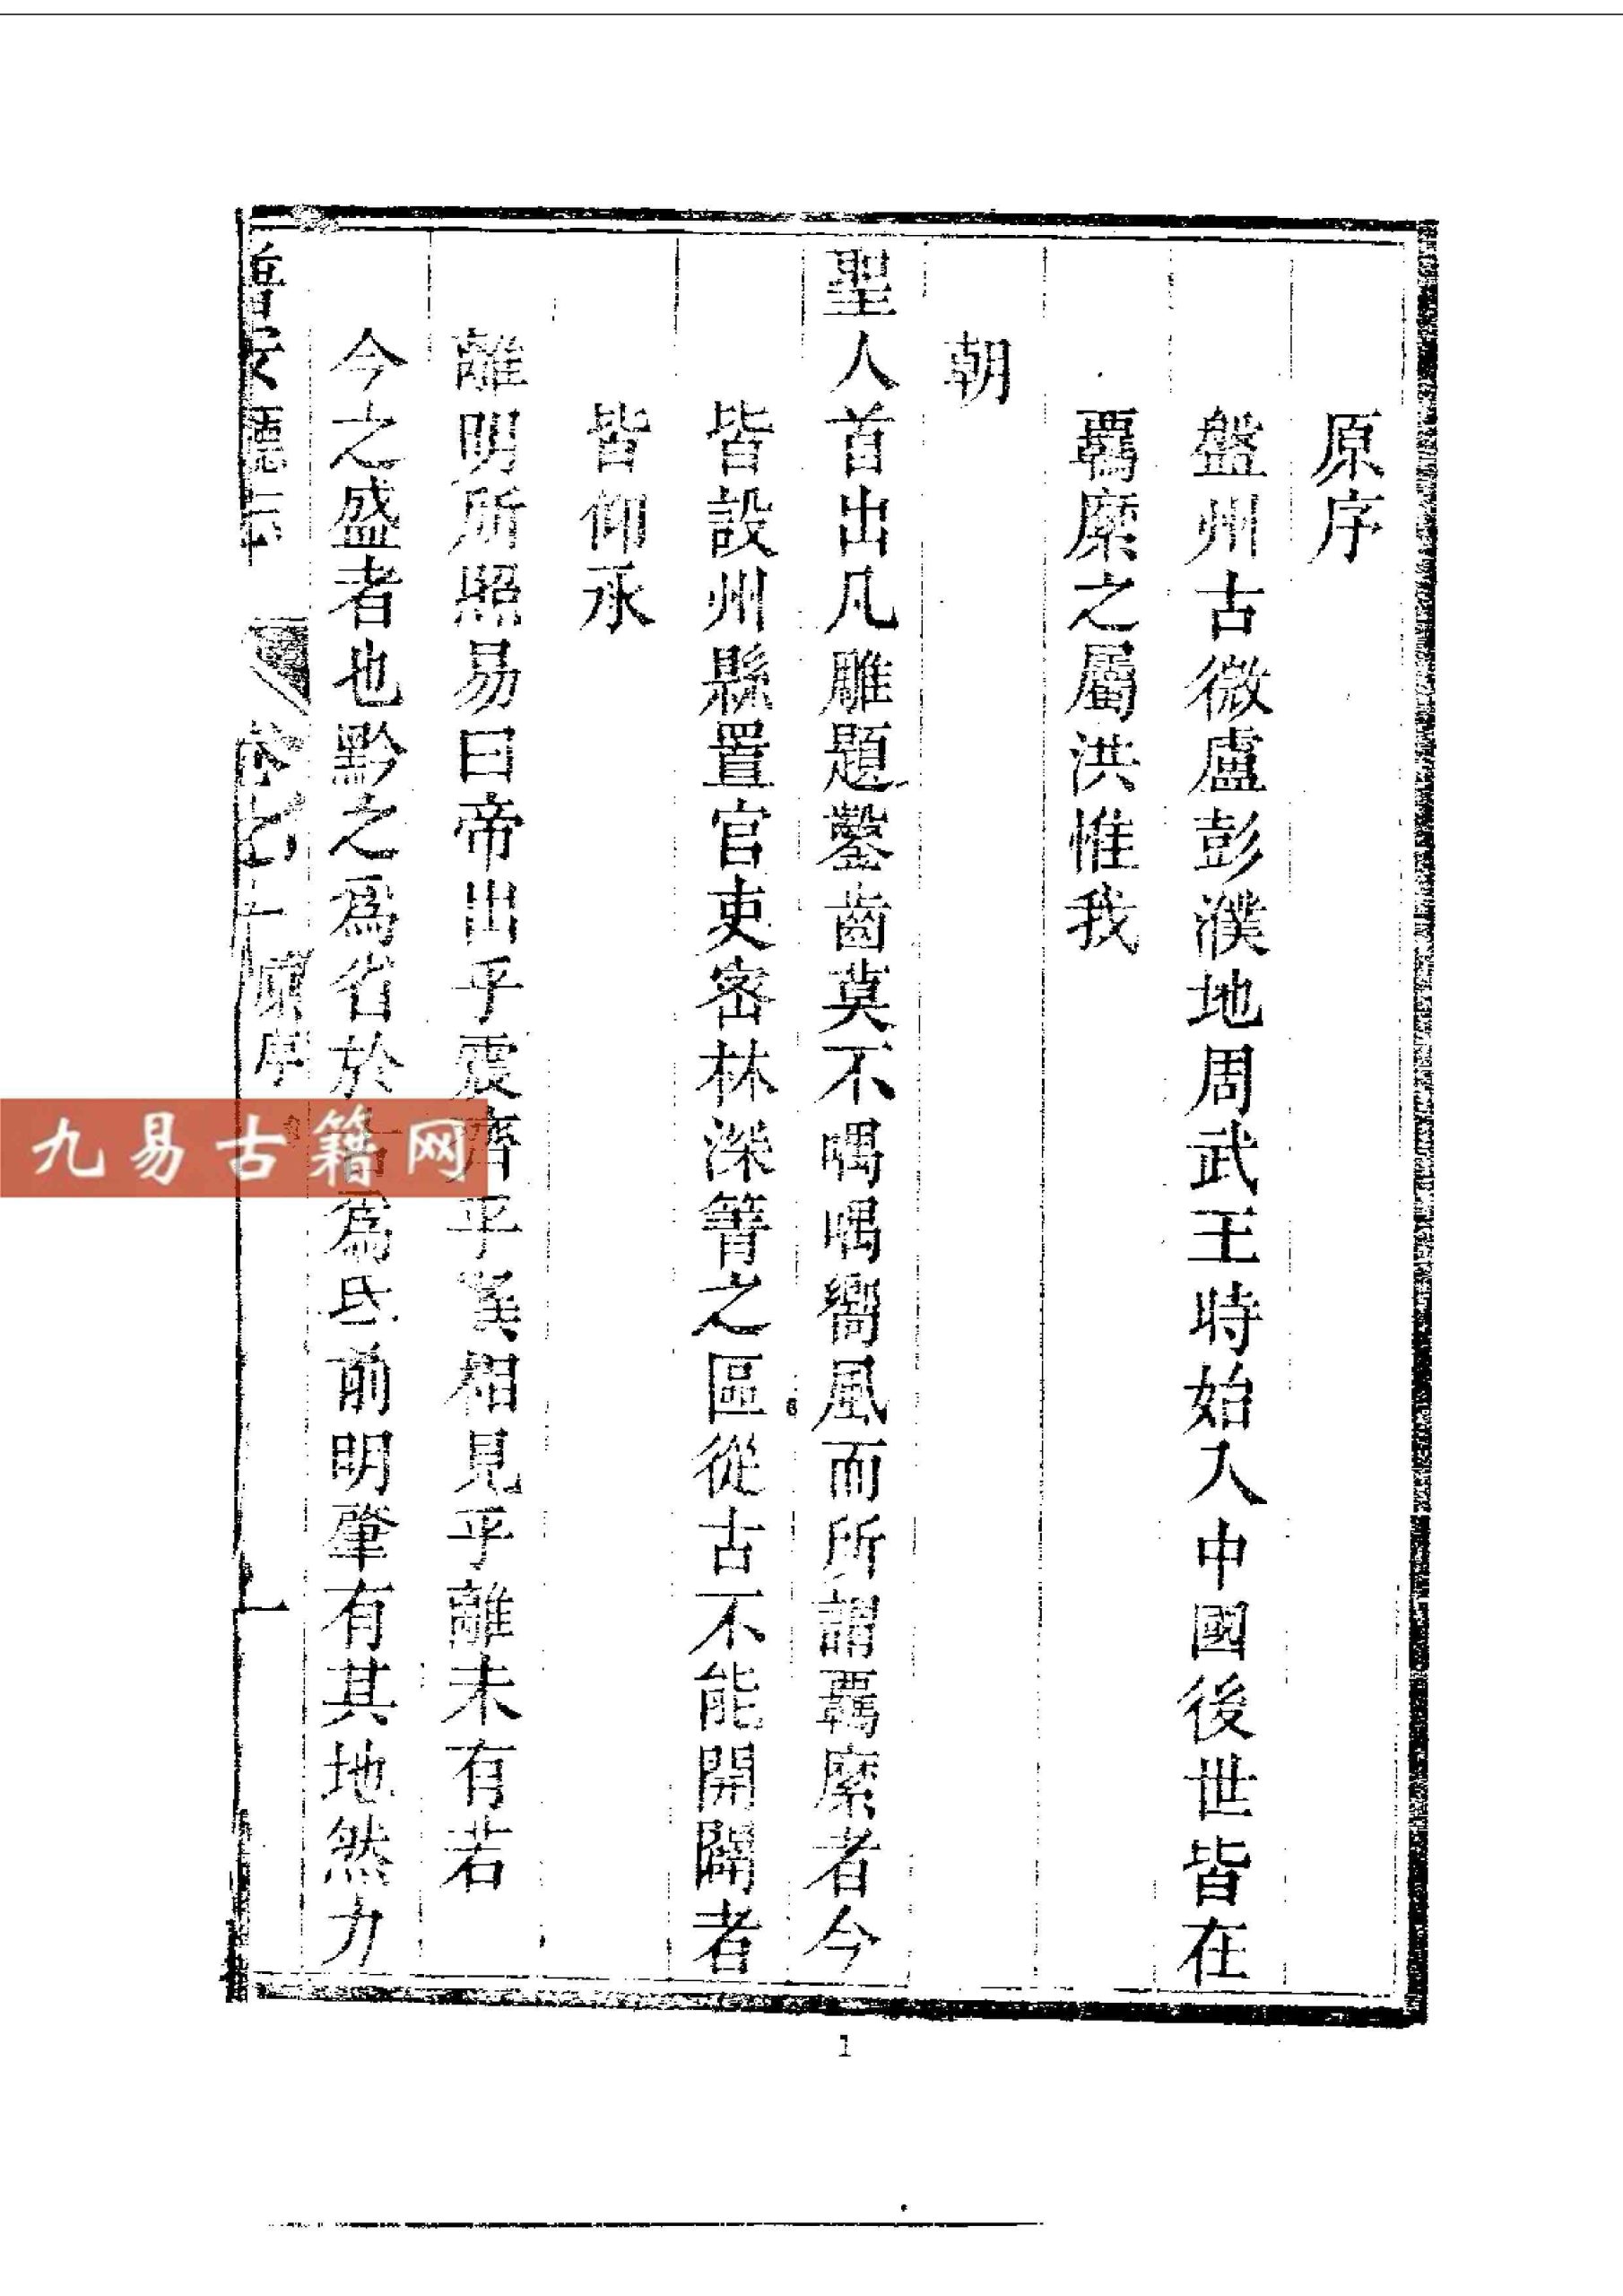 原序
盤州古微盧彭濮地周武王時始入中國後世皆在
羈縻之屬洪惟我
朝
聖人首出凡雕題鑿齒莫不喁喁嚮風而所謂羈縻者今
皆設州縣置官吏密林深箐之區從古不能開闢者
皆仰承
離明所照易曰帝出乎震齊乎巽相見乎離未有若
今之盛者也黔之爲省於古爲氐前明肇有其地然力
普安廳志
原序
一
九易古籍网
1